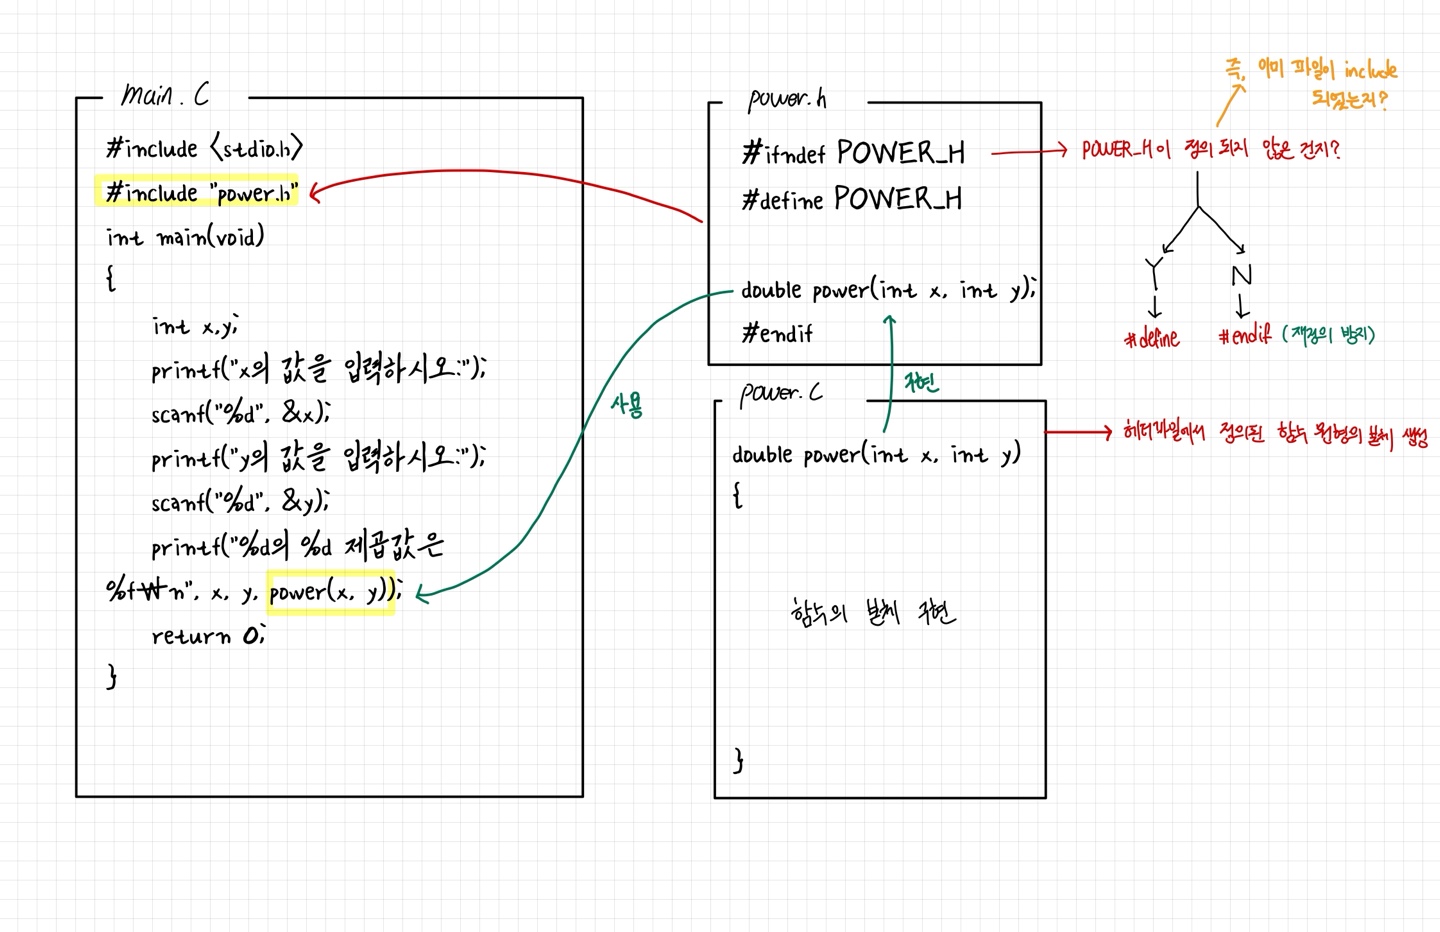 main.C
#include <stdio.h>
#include "power.h"
int main(void)
{
int x,y;
printf("x의 값을 입력하시오:");
scanf("%d", &x);
printf("y의 값을 입력하시오:");
scanf("%d", &y);
printf("%d의 %d 제곱값은
%f₩n", x, y, power(x, y));
return 0;
}
사용
power.h
#ifndef POWER_H
#define POWER_H
double power(int x, int y);
#endif
구현
power.C
double power(int x, int y)
{
함수의 본체 구현
}
즉, 이미 파일이 include
되었는지?
POWER_H이 정의 되지 않은 건지?
Y
N
#define
#endif (재정의 방지)
헤더파일에서 정의된 함수 원형의 본체 생성